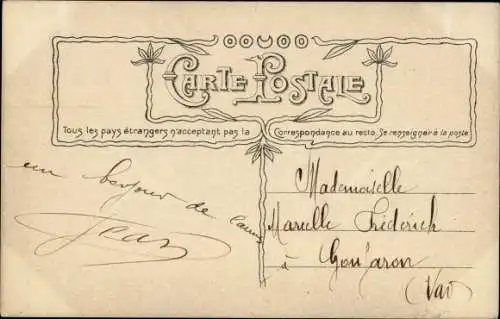 CARTE POSTALE
Tous les pays étrangers n'acceptant pas la Correspondance au recto. Se renseigner à la poste
un bonjour de Cannes
Jean
Mademoiselle
Marcelle Fréderich
à Gonfaron
(Var)